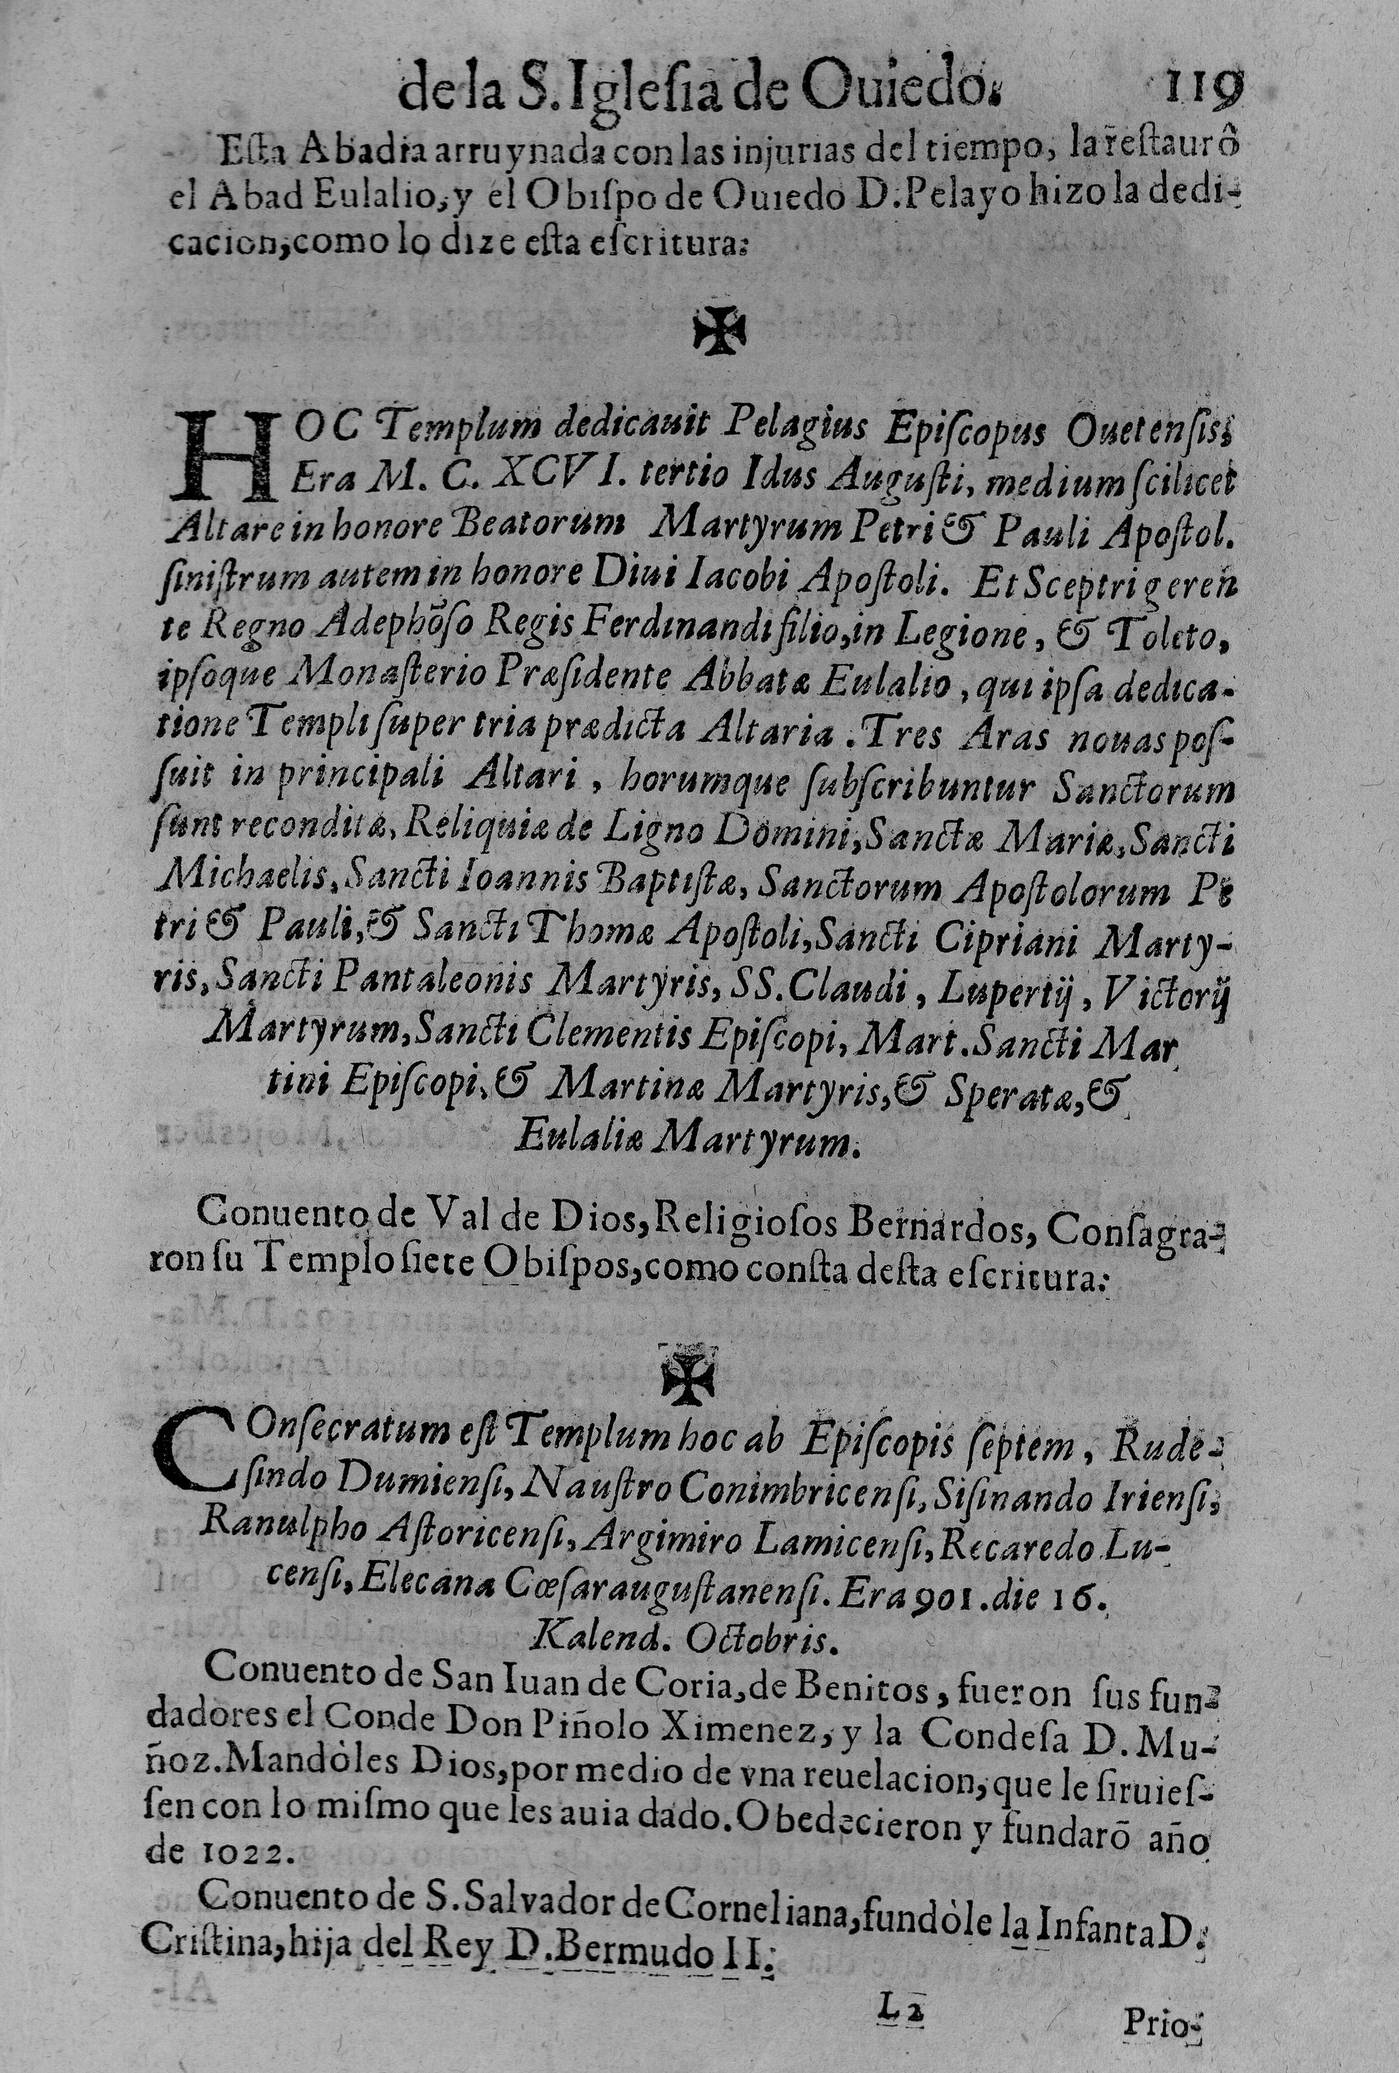 de la S. Iglesia de Ouiedo. 119
Esta Abadia arruynada con las injurias del tiempo, la restaurô
el Abad Eulalio, y el Obispo de Ouiedo D. Pelayo hizo la dedi-
cacion, como lo dize esta escritura.
✠
HOC Templum dedicauit Pelagius Episcopus Ouetensis,
Era M. C. XCVI. tertio Idus Augusti, medium scilicet
Altare in honore Beatorum Martyrum Petri & Pauli Apostol.
sinistrum autem in honore Diui Iacobi Apostoli. Et Sceptri geren
te Regno Adephõso Regis Ferdinandi filio, in Legione, & Toleto,
ipsoque Monasterio Præsidente Abbatæ Eulalio, qui ipsa dedica-
tione Templi super tria prædicta Altaria. Tres Aras nouas pos-
suit in principali Altari, horumque subscribuntur Sanctorum
sunt reconditæ, Reliquiæ de Ligno Domini, Sanctæ Mariæ, Sancti
Michaelis, Sancti Ioannis Baptistæ, Sanctorum Apostolorum Pe
tri & Pauli, & Sancti Thomæ Apostoli, Sancti Cipriani Marty-
ris, Sancti Pantaleonis Martyris, SS. Claudi, Lupertij, Victorij
Martyrum, Sancti Clementis Episcopi, Mart. Sancti Mar
tini Episcopi, & Martinæ Martyris, & Speratæ, &
Eulaliæ Martyrum.
Conuento de Val de Dios, Religiosos Bernardos, Consagra-
ron su Templo siete Obispos, como consta desta escritura:
✠
COnsecratum est Templum hoc ab Episcopis septem, Rude-
sindo Dumiensi, Naustro Conimbricensi, Sisinando Iriensi,
Ranulpho Astoricensi, Argimiro Lamicensi, Recaredo Lu-
censi, Elecana Cœsaraugustanensi. Era 901. die 16.
Kalend. Octobris.
Conuento de San Iuan de Coria, de Benitos, fueron sus fun-
dadores el Conde Don Piñolo Ximenez, y la Condesa D. Mu-
ñoz. Mandòles Dios, por medio de vna reuelacion, que le siruies-
sen con lo mismo que les auia dado. Obedecieron y fundarõ año
de 1022.
Conuento de S. Salvador de Corneliana, fundòle la Infanta D.
Cristina, hija del Rey D. Bermudo II.
L2 Prio-